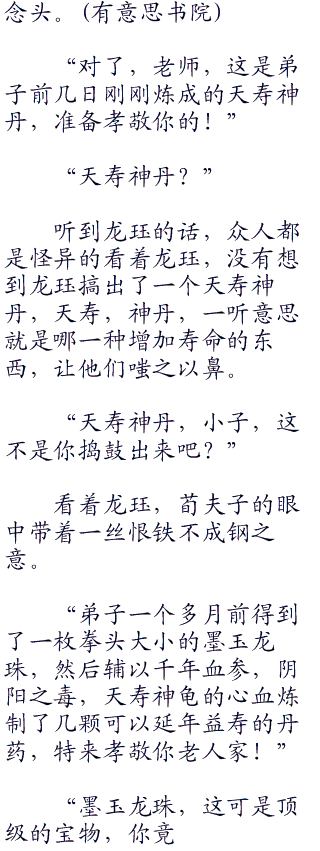 念头。(有意思书院)
“对了，老师，这是弟
子前几日刚刚炼成的天寿神
丹，准备孝敬你的！”
“天寿神丹？”
听到龙珏的话，众人都
是怪异的看着龙珏，没有想
到龙珏搞出了一个天寿神
丹，天寿，神丹，一听意思
就是哪一种增加寿命的东
西，让他们嗤之以鼻。
“天寿神丹，小子，这
不是你捣鼓出来吧？”
看着龙珏，荀夫子的眼
中带着一丝恨铁不成钢之
意。
“弟子一个多月前得到
了一枚拳头大小的墨玉龙
珠，然后辅以千年血参，阴
阳之毒，天寿神龟的心血炼
制了几颗可以延年益寿的丹
药，特来孝敬你老人家！”
“墨玉龙珠，这可是顶
级的宝物，你竟